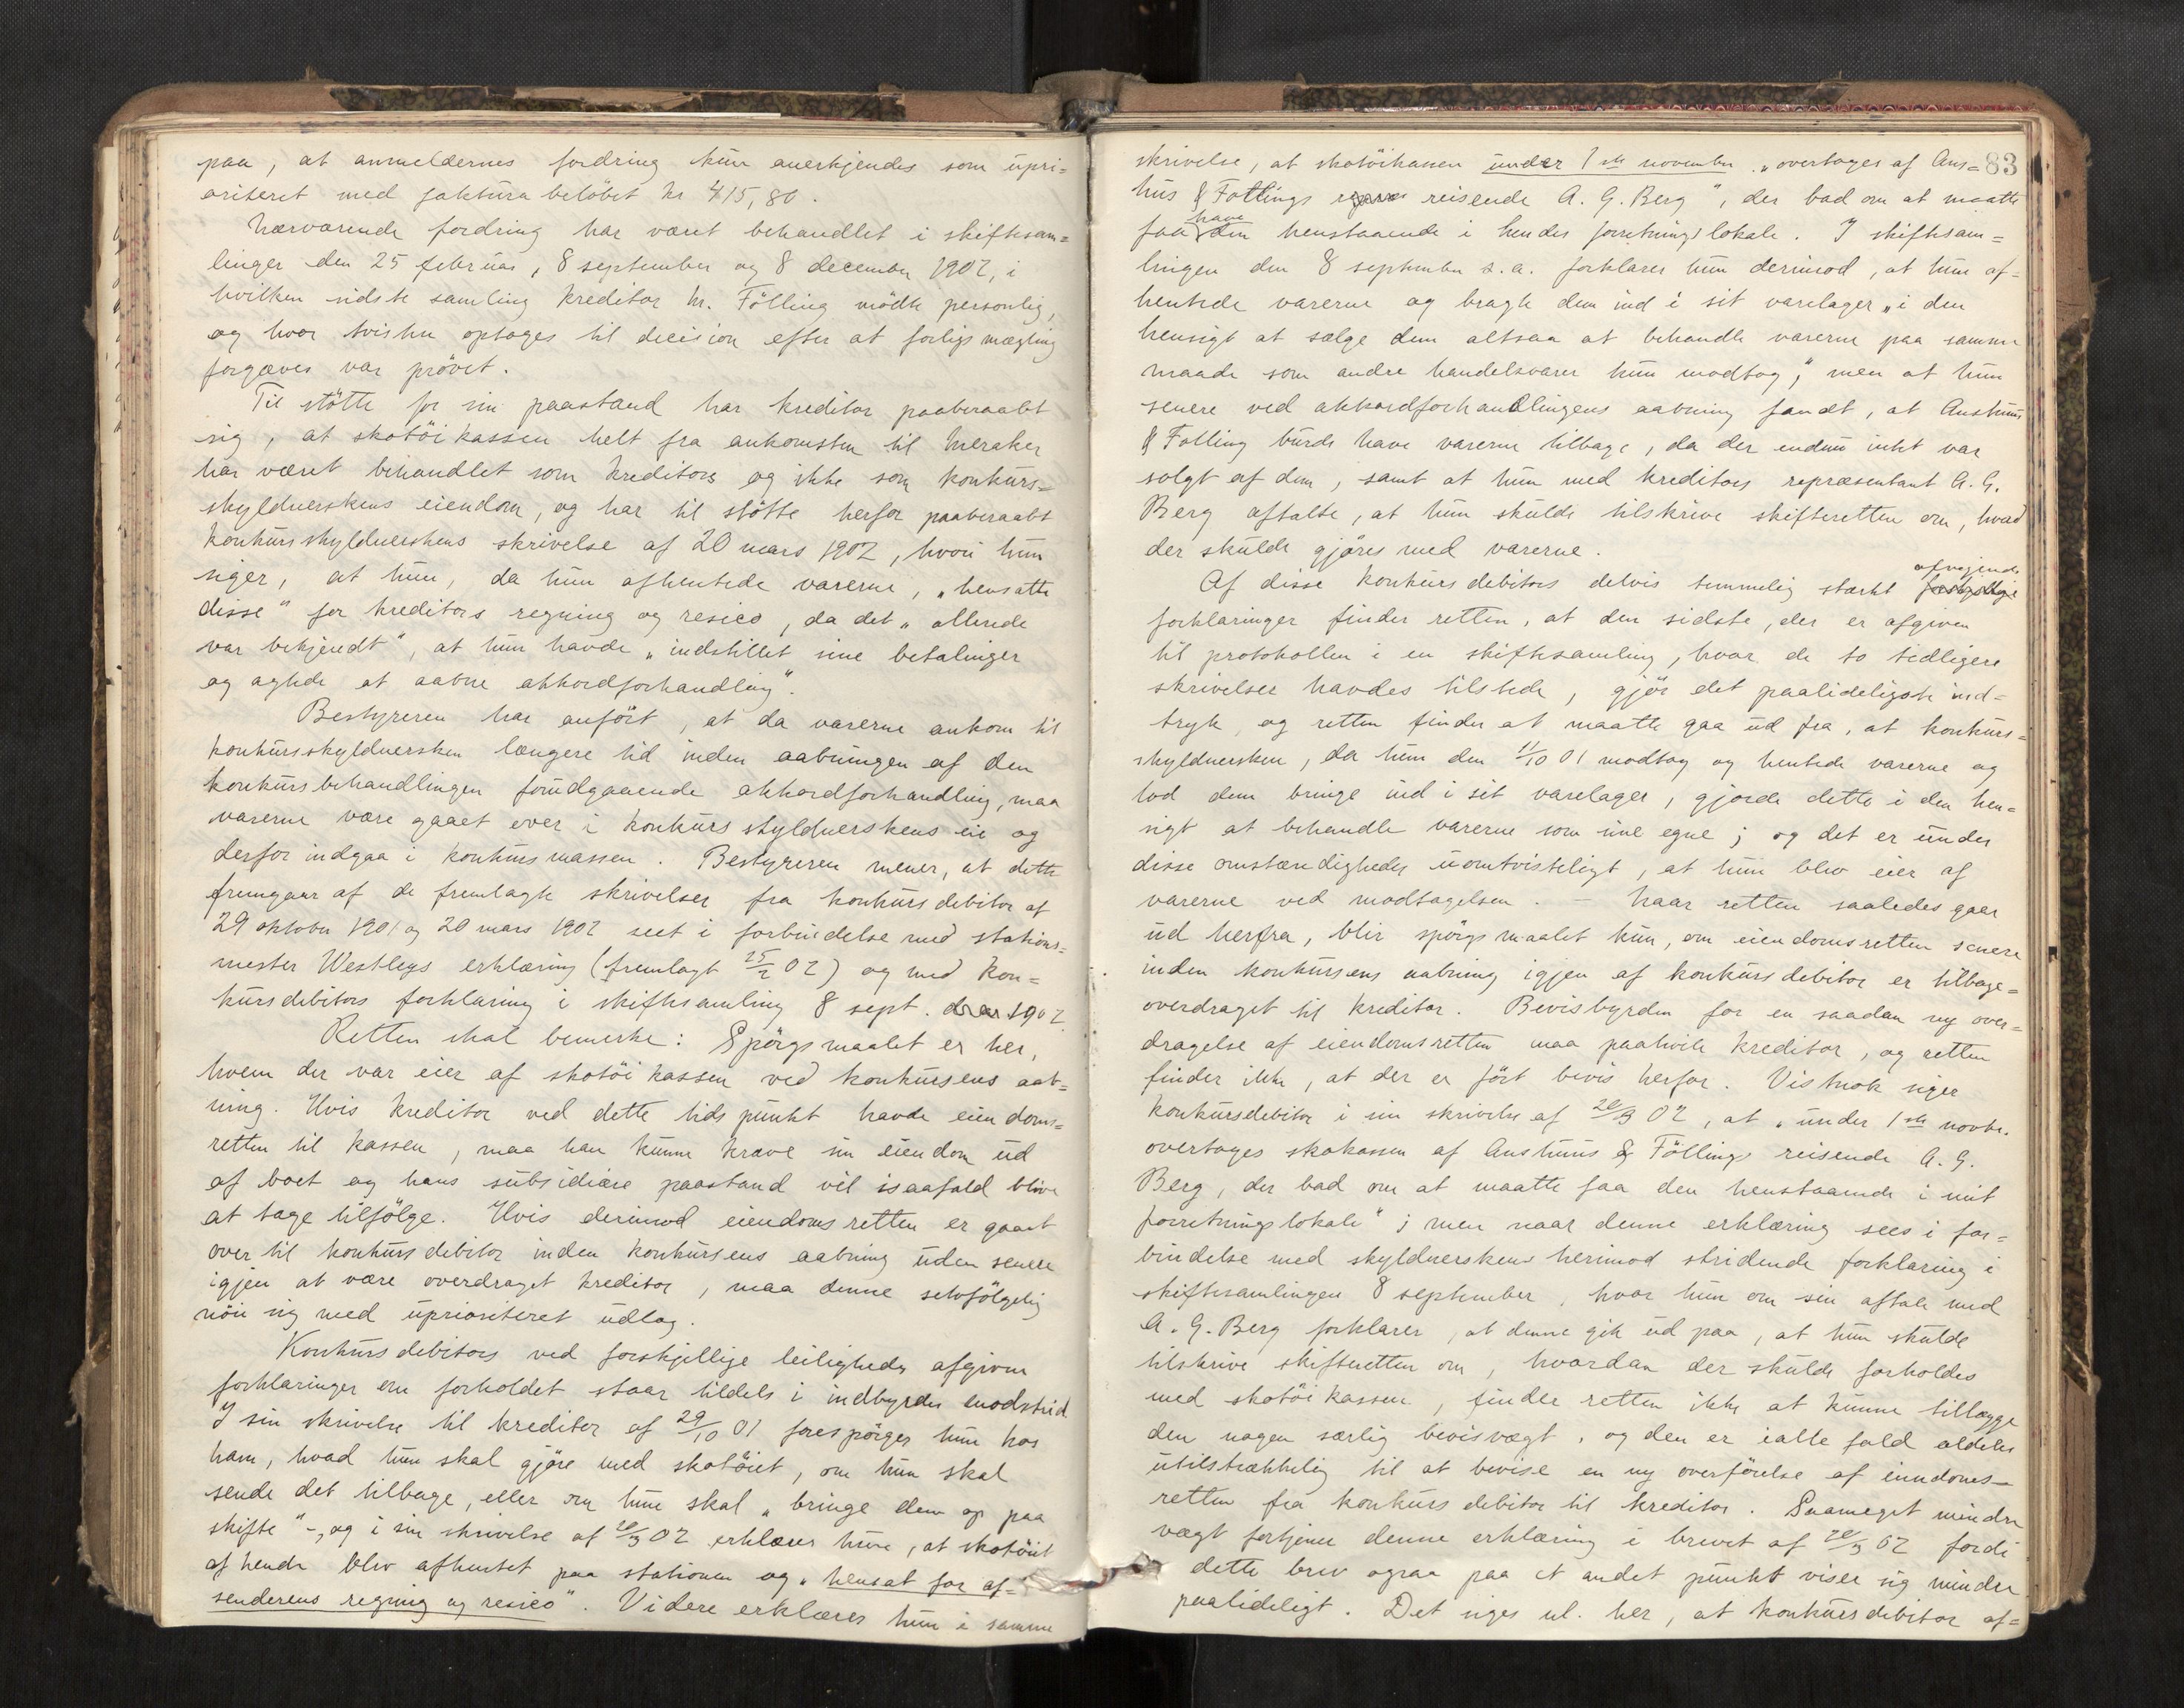 paa, at anmeldernes fordring kun anerkjendes som upri=
oriteret med fakturabeløbet kr 415,80.
Nærværende fordring har været behandlet i skiftesam=
linger den 25 februar, 8 september og 8 december 1902, i
hvilken sidste samling kreditor hr. Fölling mödte personlig,
og hvor tvisten optoges til decision efter at forligsmægling
forgæves var prövet.
Til stötte for sin paastand har kreditor paaberaabt
sig, at skotöikassen helt fra ankomsten til Meraker
har været behandlet som kreditors og ikke som konkurs=
skyldnerskens eiendom, og har til stötte herfor paaberaabt
konkursskyldnerskens skrivelse af 20 mars 1902, hvori hun
siger, at hun, da hun afhentede varerne, „hensatte
disse" for kreditors regning og resico, da det „allerede
var bekjendt", at hun havde „indstillet sine betalinger
og agtede at aabne akkordforhandling".
Bestyreren har anfört, at da varerne ankom til
konkursskyldnersken længere tid inden aabningen af den
konkursbehandlingen forudgaaende akkordforhandling, maa
varerne være gaaet over i konkursskyldnerskens eie og
derfor indgaa i konkursmassen. Bestyreren mener, at dette
fremgaar af de fremlagte skrivelser fra konkursdebitor af
29 oktober 1901 og 20 mars 1902 seet i forbindelse med stations=
mester Westlys erklæring (fremlagt 25/2 02) og med kon=
kursdebitors forklaring i skiftesamling 8 sept. 1902
Retten skal bemerke: Spörgsmaalet er her,
hvem der var eier af skotöikassen ved konkursens aab=
ning. Hvis kreditor ved dette tidspunkt havde eiendoms=
retten til kassen, maa han kunne kræve sin eiendom ud
af boet og hans subsidiære paastand vil isaafald blive
at tage tilfölge. Hvis derimod eiendomsretten er gaaet
over til konkursdebitor inden konkursens aabning uden senere
igjen at være overdraget kreditor, maa denne selvfölgelig
nöie sig med uprioriteret udlæg.
Konkursdebitors ved forskjellige leiligheder afgivne
forklaringer om forholdet staar tildels i indbyrdes modstrid
I sin skrivelse til kreditor af 29/10 01 forespörger hun hos
ham, hvad hun skal gjöre med skotöiet, om hun skal
sende det tilbage, eller om hun skal „bringe dem op paa
skifte" -, og i sin skrivelse af 20/3 02 erklærer hun, at skotöiet
af hende blev afhentet paa stationen og „hensat for af=
senderens regning og resico". Videre erklærer hun i samme
83
skrivelse, at skotöikassen under 1ste november „overtoges af Aus=
hus & Föllings reisende A. G. Berg", der bad om at maatte
faa have den henstaaende i hendes forretningslokale. I skiftesam=
lingen den 8 september s.a. forklarer hun derimod, at hun af=
hentede varerne og bragte dem ind i sit varelager „i den
hensigt at sælge dem altsaa at behandle varerne paa samme
maade som andre handelsvarer hun modtog", men at hun
senere ved akkordforhandlingens aabning fandt, at Aushuus
& Fölling burde have varerne tilbage, da der endnu intet var
solgt af dem, samt at hun med kreditors repræsentant A. G.
Berg aftalte, at hun skulde tilskrive skifteretten om, hvad
der skulde gjöres med varerne.
Af disse konkursdebitors delvis temmelig stærkt afvigende
forklaringer finder retten, at den sidste, der er afgiven
til protokollen i en skiftesamling, hvor de to tidligere
skrivelser havdes tilstede, gjör det paalideligste ind=
tryk, og retten finder at maatte gaa ud fra, at konkurs=
skyldnersken, da hun den 11/10 01 modtog og hentede varerne og
lod dem bringe ind i sit varelager, gjorde dette i den hen=
sigt at behandle varerne som sine egne; og det er under
disse omstændigheder uomtvisteligt, at hun blev eier af
varerne ved modtagelsen. - Naar retten saaledes gaar
ud herfra, blir spörgsmaalet kun, om eiendomsretten senere
inden konkursens aabning igjen af konkursdebitor er tilbage=
overdraget til kreditor. Bevisbyrden for en saadan ny over=
dragelse af eiendomsretten maa paahvile kreditor, og retten
finder ikke, at der er fört bevis herfor. Vistnok siger
konkursdebitor i sin skrivelse af 20/3 02, at „under 1ste novbr.
overtoges skokassen af Aushuus & Föllings reisende A. G.
Berg, der bad om at maatte faa den henstaaende i mit
forretningslokale"; men naar denne erklæring sees i for=
bindelse med skyldnerskens herimod stridende forklaring i
skiftesamlingen 8 september, hvor hun om sin aftale med
A. G. Berg forklarer, at denne gik ud paa, at hun skulde
tilskrive skifteretten om, hvordan der skulde forholdes
med skotöikassen, finder retten ikke at kunne tillægge
den nogen særlig bevisvægt, og den er ialle fald aldeles
utilstrækkelig til at bevise en ny overförelse af eiendoms=
retten fra konkursdebitor til kreditor. Saameget mindre
vægt fortjener denne erklæring i brevet af 20/3 02 fordi
dette brev ogsaa paa et andet punkt viser sig mindre
paalideligt. Det siges nl. her, at konkursdebitor af=